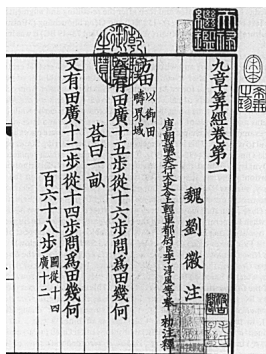 九章算經卷第一
魏劉徽注
唐朝議大夫行太史令上輕車都尉臣李淳風等奉敕注釋
方田以御田疇界域
今有田廣十五步從十六步問為田幾何
荅曰一畝
又有田廣十二步從十四步問為田幾何
百六十八步圖從十四廣十二